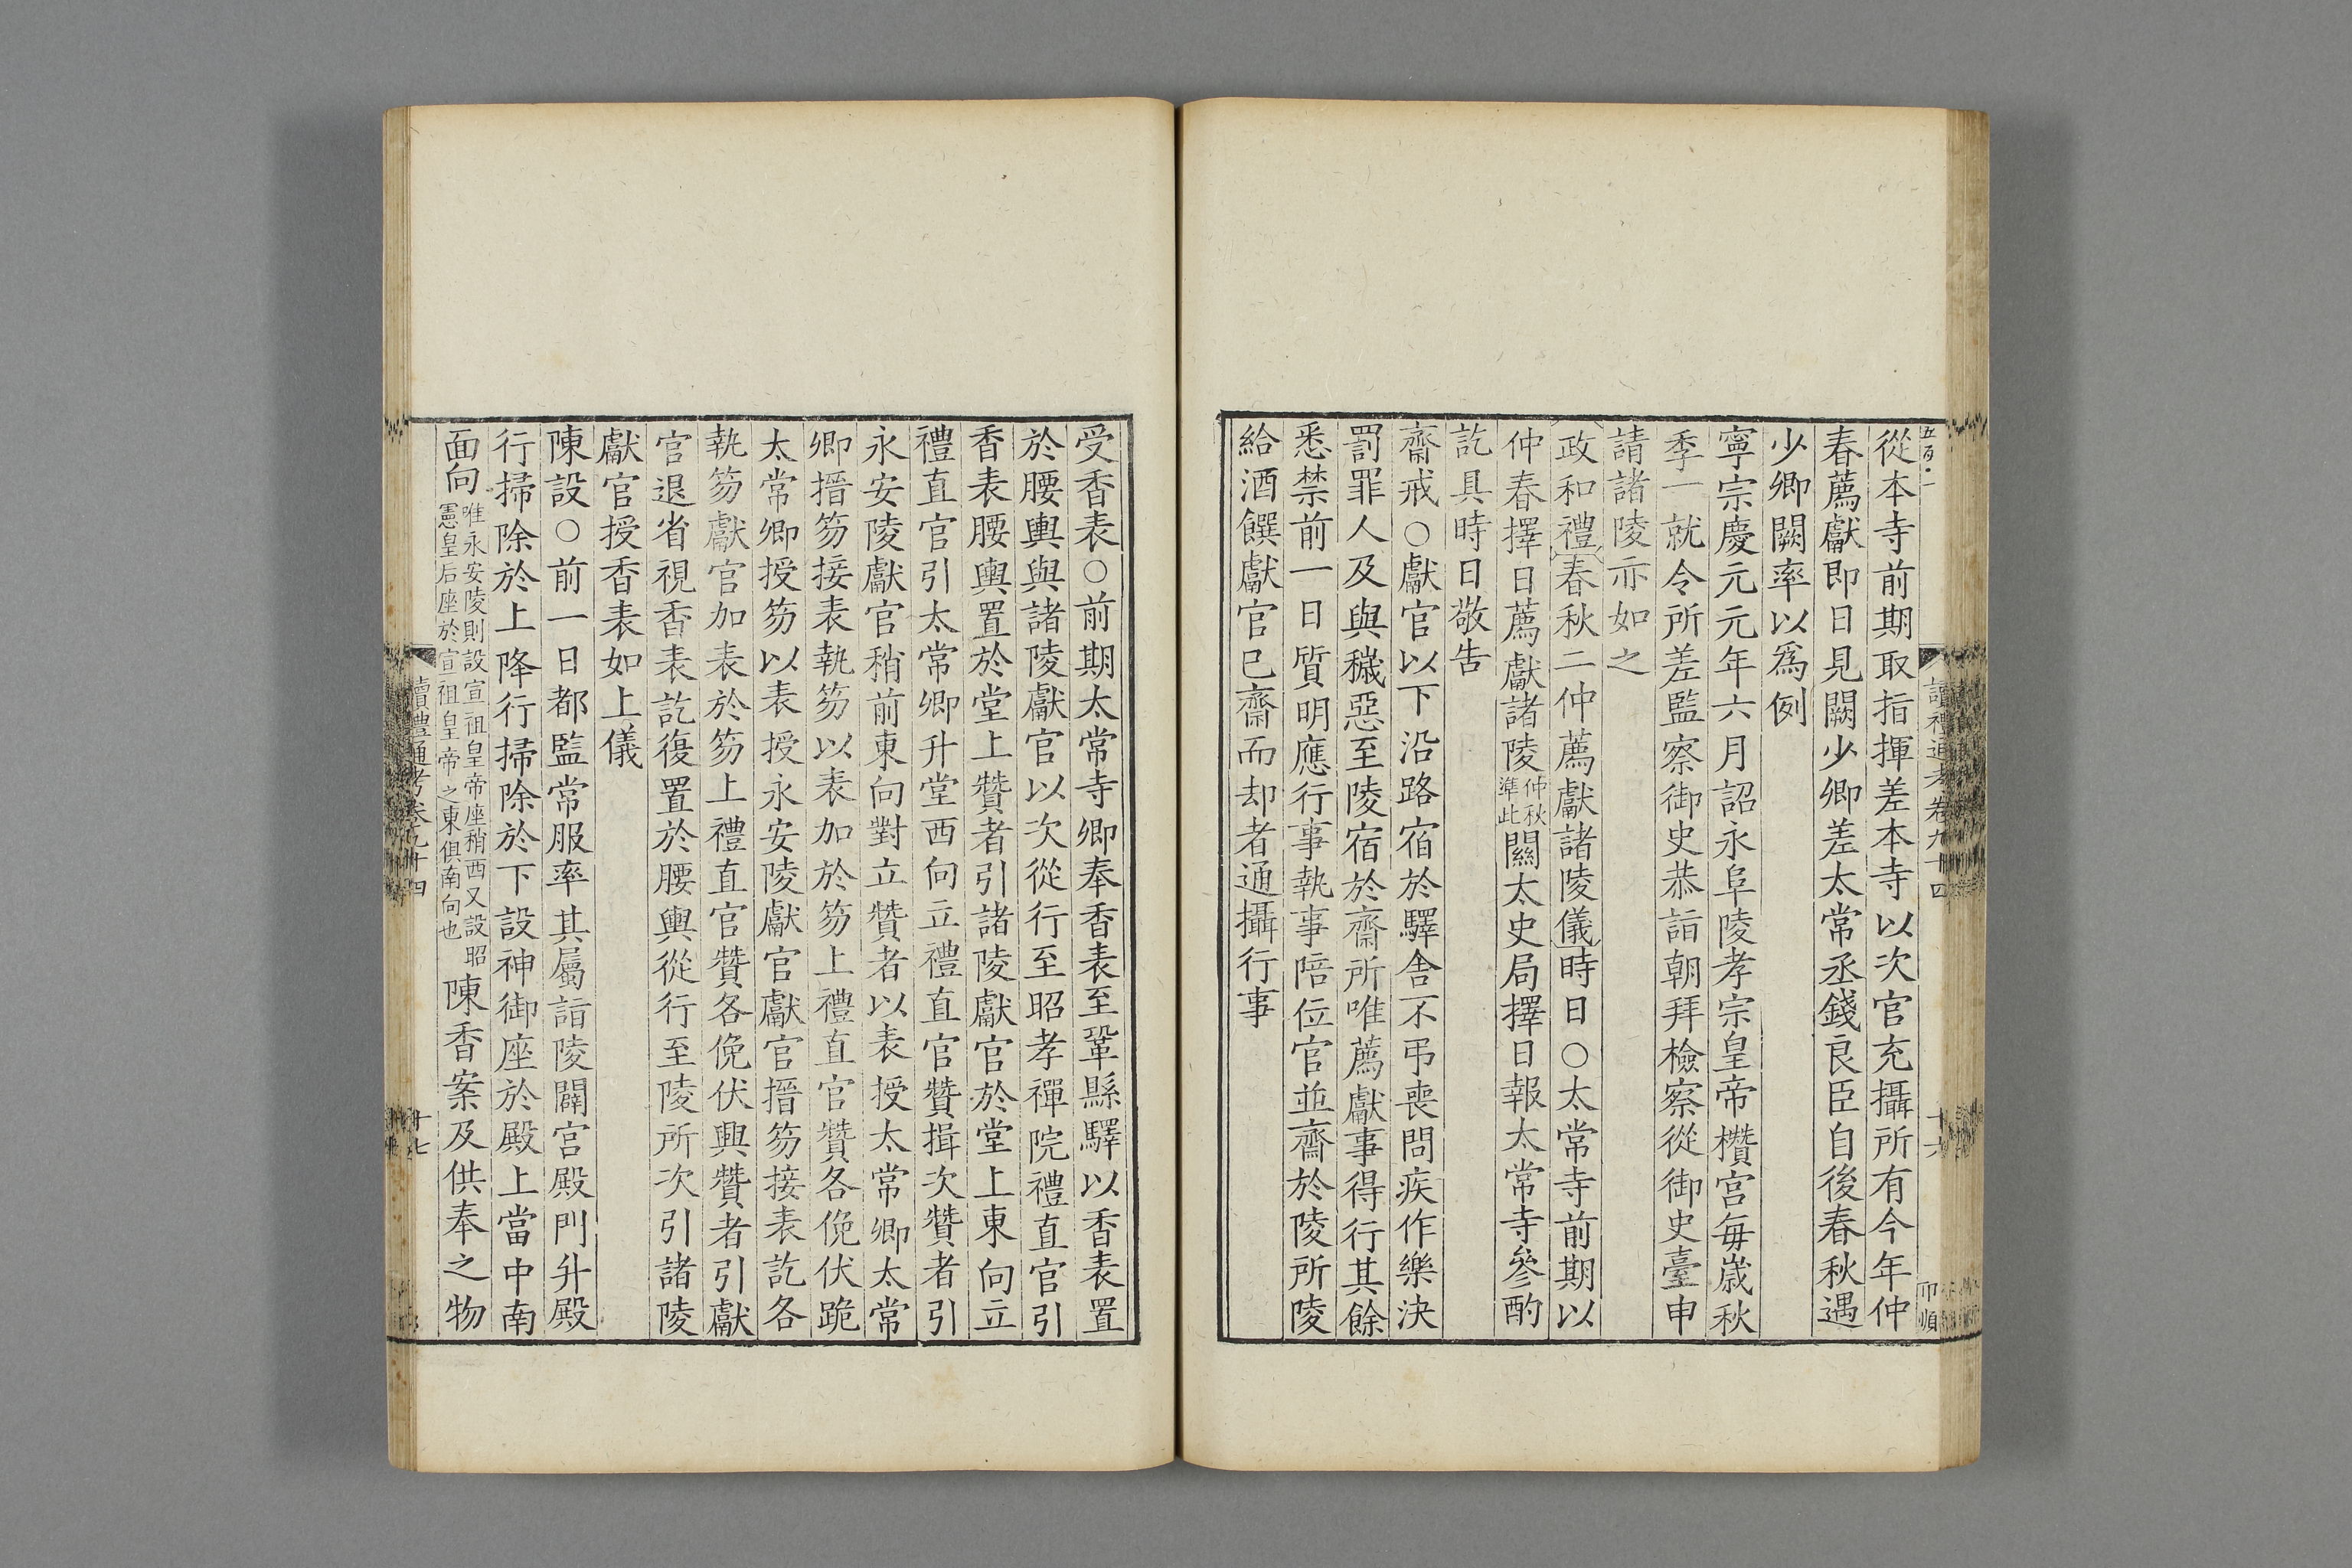 從本寺前期取指揮差本寺以次官充攝所有今年仲
春薦獻即日見闕少卿差太常丞錢良臣自後春秋遇
少卿闕率以爲例
寧宗慶元元年六月詔永阜陵孝宗皇帝欑宮每歲秋
季一就令所差監察御史恭詣朝拜檢察從御史臺申
請諸陵亦如之
政和禮春秋二仲薦獻諸陵儀時日○太常寺前期以
仲春擇日薦獻諸陵仲秋準此關太史局擇日報太常寺參酌
訖具時日敬告
齋戒○獻官以下沿路宿於驛舎不弔喪問疾作樂決
罰罪人及與穢惡至陵宿於齋所唯薦獻事得行其餘
悉禁前一日質明應行事執事陪位官並齋於陵所陵
給酒饌獻官已齋而却者通攝行事
讀禮通考卷九十四
十六
受香表○前期太常寺卿奉香表至鞏縣驛以香表置
於腰輿與諸陵獻官以次從行至昭孝禪院禮直官引
香表腰輿置於堂上贊者引諸陵獻官於堂上東向立
禮直官引太常卿升堂西向立禮直官贊揖次贊者引
永安陵獻官稍前東向對立贊者以表授太常卿太常
卿搢笏接表執笏以表加於笏上禮直官贊各俛伏跪
太常卿授笏以表授永安陵獻官獻官搢笏接表訖各
執笏獻官加表於笏上禮直官贊各俛伏興贊者引獻
官退省視香表訖復置於腰輿從行至陵所次引諸陵
獻官授香表如上儀
陳設○前一日都監常服率其屬詣陵闢宮殿門升殿
行掃除於上降行掃除於下設神御座於殿上當中南
面向唯永安陵則設宣祖皇帝座稍西又設昭憲皇后座於宣祖皇帝之東俱南向也陳香案及供奉之物
讀禮通考卷九十四
十七